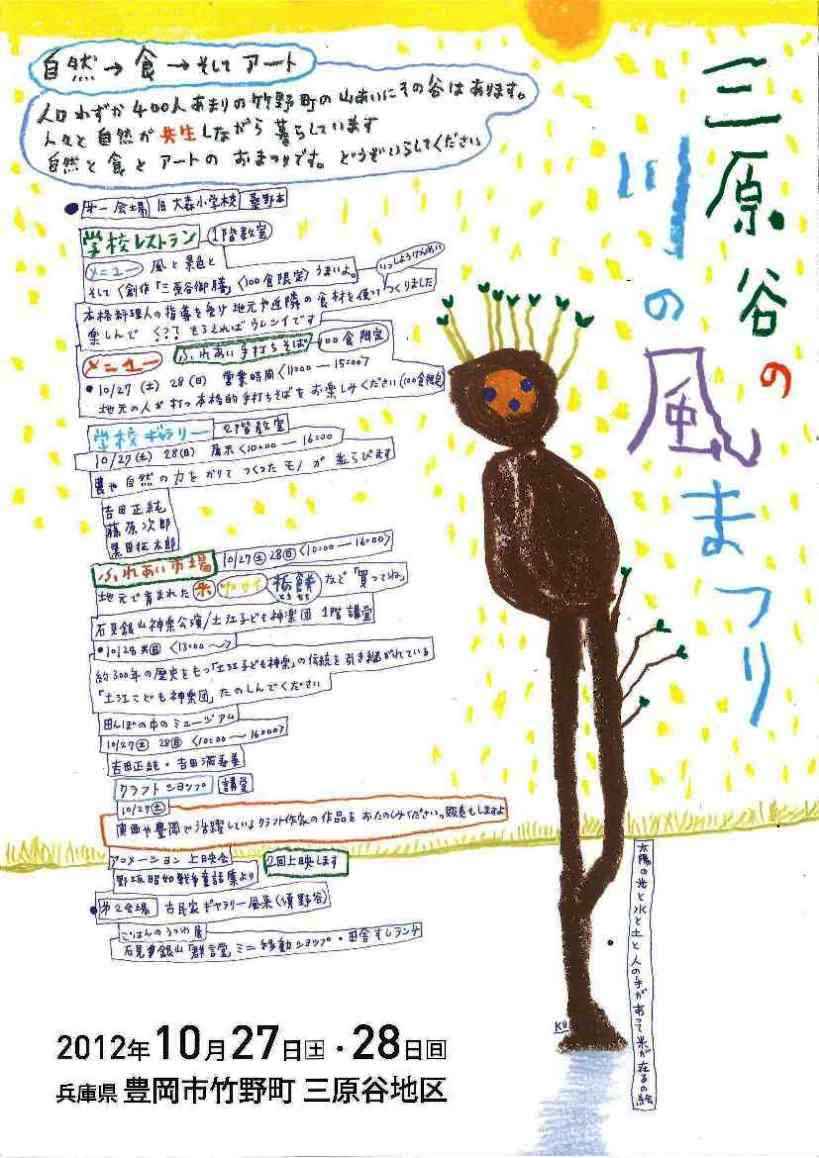 三原谷の
川の風まつり
自然→食→そしてアート
人口わずか400人あまりの竹野町の山あいにその谷はあります。
人々と自然が共生しながら暮らしています
自然と食とアートのおまつりです。どうぞいらしてください
●第一会場 旧大森小学校
学校レストラン 1階教室
メニュー 風と景色と
そして〈創作「三原谷御膳」〈100食限定〉うまいよ。
いっしょうけんめい
本格料理人の指導を受け地元や近隣の食材を使ってつくりました
楽しんで くださればウレシイです
メニュー ふれあい手打ちそば 100食限定
●10/27(土) 28(日) 営業時間〈11:00ー15:00〉
地元の人が打つ本格的手打ちそばをお楽しみください(100食限定)
学校ギャラリー 2階教室
10/27(土) 28(日) 展示〈10:00ー16:00
農や自然の力をかりてつくったモノが並らびます
吉田正純
藤原次郎
黒田征太郎
ふれあい市場 10/27土 28日〈10:00ー16:00〉
地元で育まれた 米 ヤサイ 栃餅 とちもち など「買ってね」
石見銀山神楽公演/土江子ども神楽団 1階講堂
●10/28日〈13:00〜〉
約300年の歴史をもつ「土江子ども神楽」の伝統を引き継がれている
「土江こども神楽団」たのしんでください
田んぼの中のミュージアム
10/27土 28日〈10:00ー16:00〉
吉田正純・吉田
クラフトショップ 講堂
10/27土
関西や豊岡で活躍しているクラフト作家の作品をおたのしみください。販売もしますよ
アニメーション上映会 2回上映します
野坂昭如戦争童話集より
●第2会場 古民家ギャラリー風景(須野谷)
ごはんのうつわ展
石見銀山「群言堂」ミニ移動ショップ・田舎すしランチ
太陽の光と水と土と人の手があって米が在るの絵
2012年10月27日土・28日日
兵庫県 豊岡市竹野町 三原谷地区